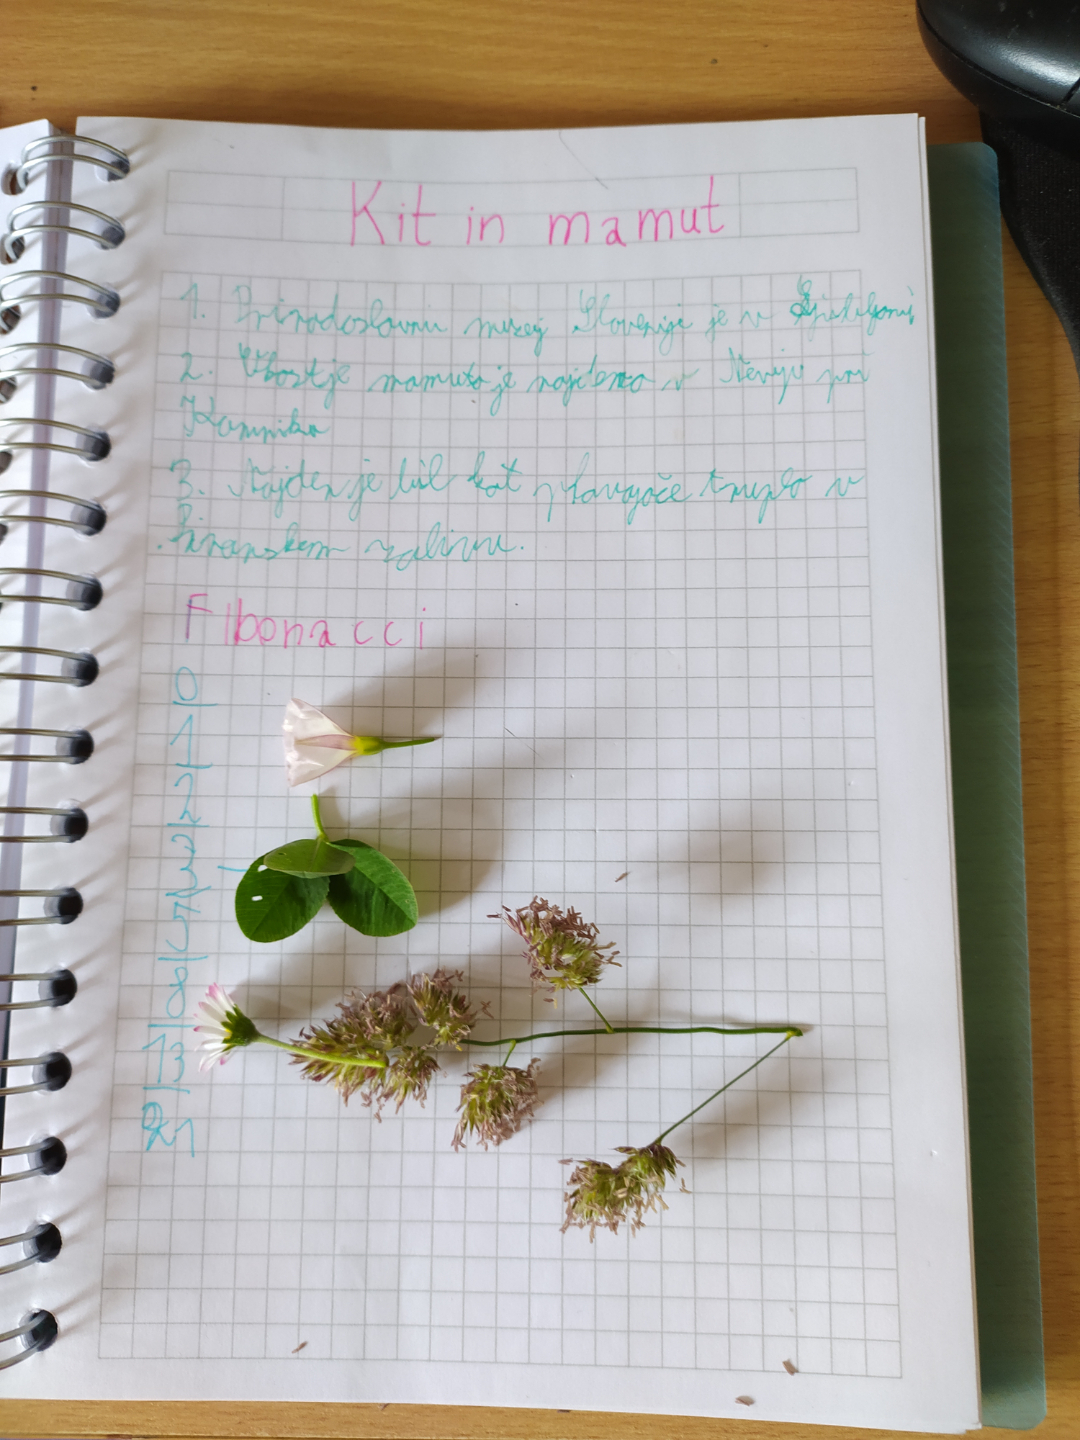 Kit in mamut
1. Prirodoslovni muzej Slovenije je v Ljubljani
2. Okostje mamuta je najdeno v Nevlje pri
Kamniku
3. Najden je bil kot plavajoče truplo v
Piranskem zalivu.
Fibonacci
0
1
1
2
3
5
8
13
21